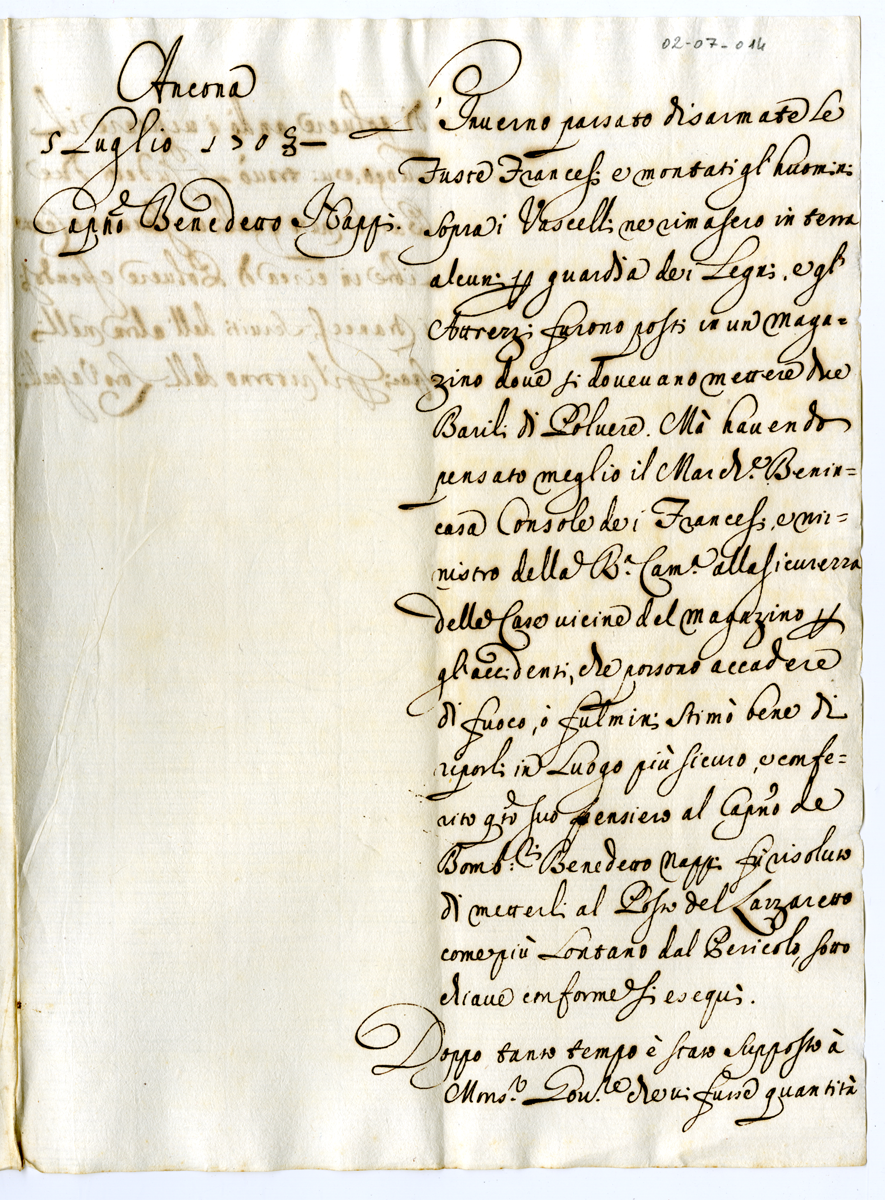 02-07-014
Ancona
5 Luglio 1703
Capno Benedetto Nappi.
L'Inverno passato disarmate le
Fuste Francesi e montati gl'huomini
sopra i Vascelli ne rimasero in terra
alcuni per guardia dei Legni, e gl'
Attrezzi furono posti in un Maga=
zino dove si dovevano mettere due
Barili di Polvere. Mà havendo
pensato meglio il March.e Benin=
casa Console dei Francesi, e mi=
nistro della R.a Cam.a alla sicurezza
delle Case vicine del magazino per
gl'accidenti, che possono accadere
di fuoco, ò fulmini stimò bene di
riporli in Luogo più sicuro, e confe=
rito qto suo pensiero al Capno de
Bomb.ri Benedetto Nappi fù risoluto
di metterli al Posto del Lazzaretto
come più lontano dal Pericolo, sotto
chiave conforme si esequì.
Doppo tanto tempo è stato supposto à
Mons.r Gov.re che vi fusse quantità